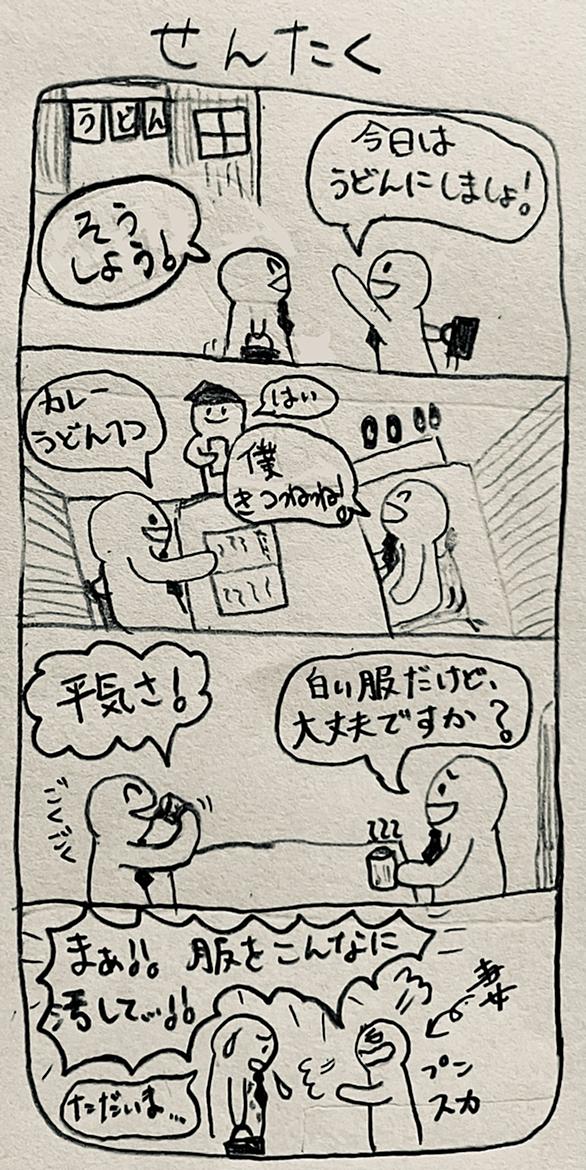 せんたく
うどん
今日は
うどんにしましょ!
そう
しよう!
カレー
うどん1つ
はい
僕
きつねね!
白い服だけど、
大丈夫ですか?
平気さ!
ごくごく
まぁ!! 服をこんなに
汚して…!!
妻
プン
スカ
ただいま…